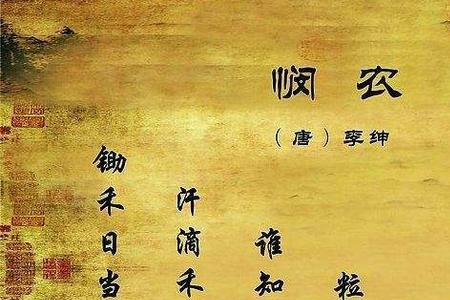 悯农
（唐）李绅
锄禾日当
汗滴禾
谁知
粒